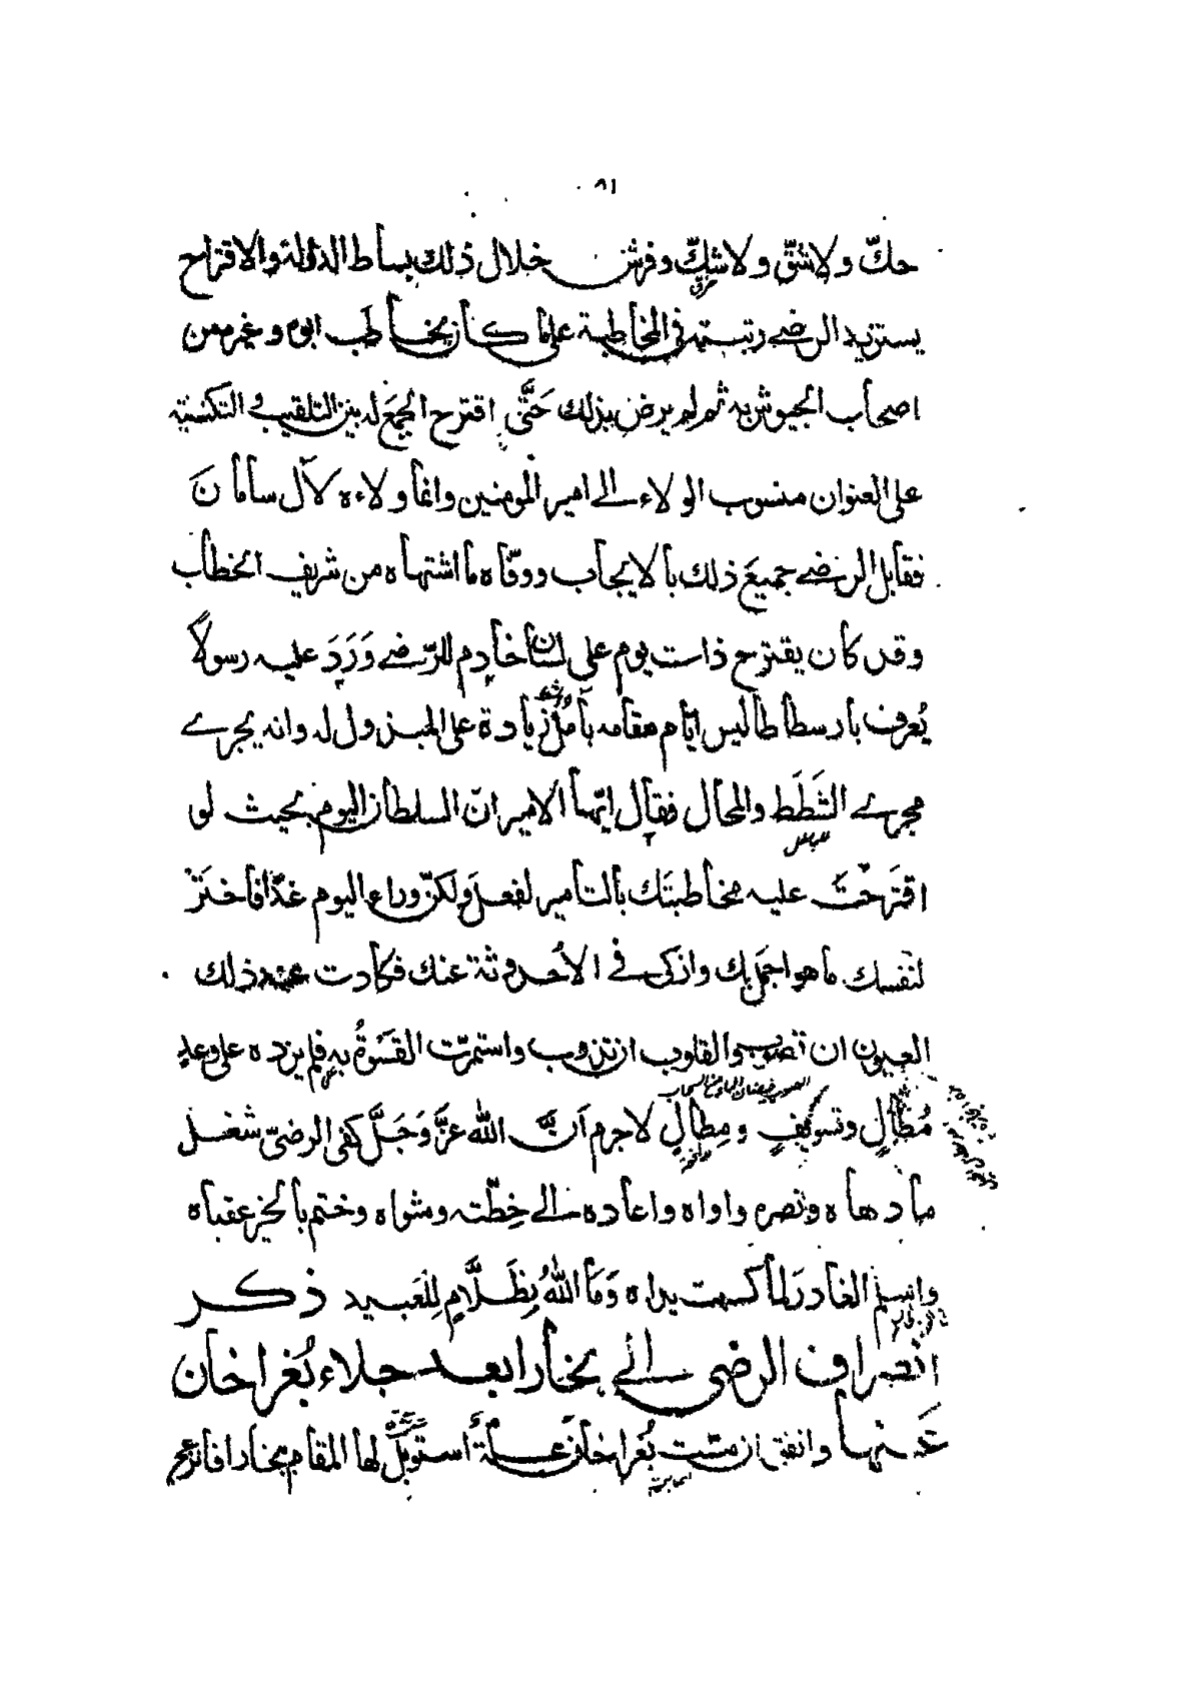 ٨١
حكّ ولا شقّ ولا شكّ وفرش خلال ذلك بساط الدالة والاقتراح
يستزيد الرضي رتبته في المخاطبة علي ما كان يخاطب ابوه وغيره من
اصحاب الجيوش به ثم لم يرض بذلك حَتّٰى اقترح الجمعَ له بين التلقيب والتكنية
علي العنوان منسوب الولاء الي امير المومنين وانما ولاءه لآل سامان
فقابل الرضي جميعَ ذلك بالايجاب ووفّاه ما اشتهاه من شريف الخطاب
وقد كان يقترح ذات يوم علي لسان خادم للرّضي وَرَدَ عليه رسولًا
يُعرف بارسطاطاليس ايّام مقامه بآمُل زيادة علي المبذول له وانه يجري
مجري الشَطَط والمحال فقال ايّها الامير انّ السلطان اليوم بحيث لو
اقترَحْتَ عليه مخاطبتَك بالتامير لفعلَ ولكنّ وراء اليوم غدًا فاختَرْ
لنفسك ما هو اجمل بك وازكى في الأُحدوثة عنك فكادت عند ذلك
العيون ان تصوب والقلوب ان تذوب واستمرّت القَسْوةُ به فلم يزده علي وعدٍ
مُطَالٍ وتسويفٍ ومِطالٍ لاجرم اَنَّ اللّٰه عزَّ وَجَلَّ كفى الرضىّ شغل
ما دهاه ونصره واواه واعاده الي خِطّته ومثواه وختم بالخير عقباه
واسلم الغادرَ لما كسبت يداه وَمَا اللّٰهُ بِظَلَّامٍ لِلْعَبيد ذكر
انصراف الرضى الي بخارا بعد جلاء بُغراخان
عَنها واتفق ان مسّت بُغراخان علّةٌ أستوبل لها المقام ببخارا فانزعج